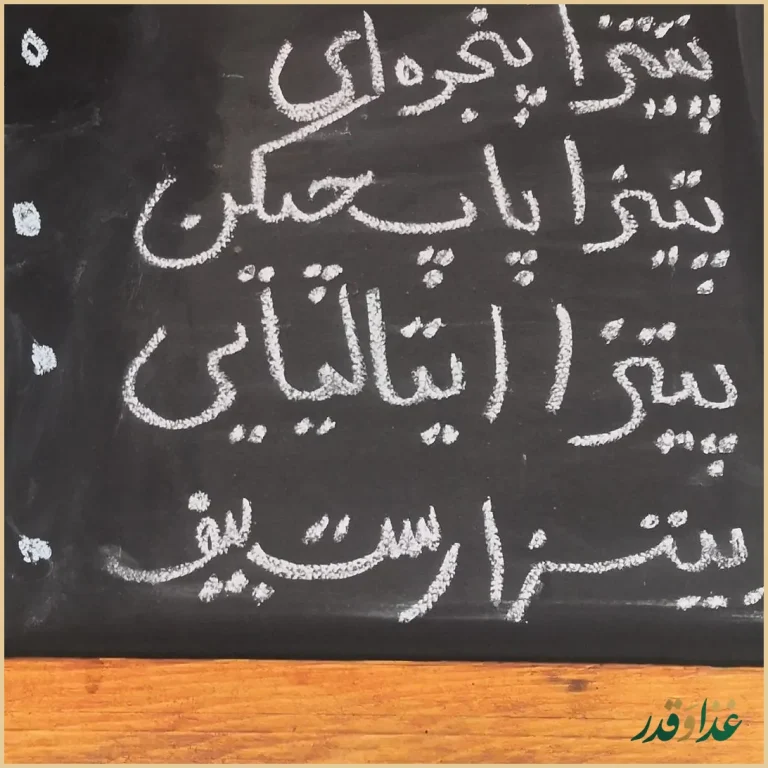 پیتزا پنجره‌ای
پیتزا پاپ چیکن
پیتزا ایتالیایی
پیتزا رست بیف
غذا و قدر